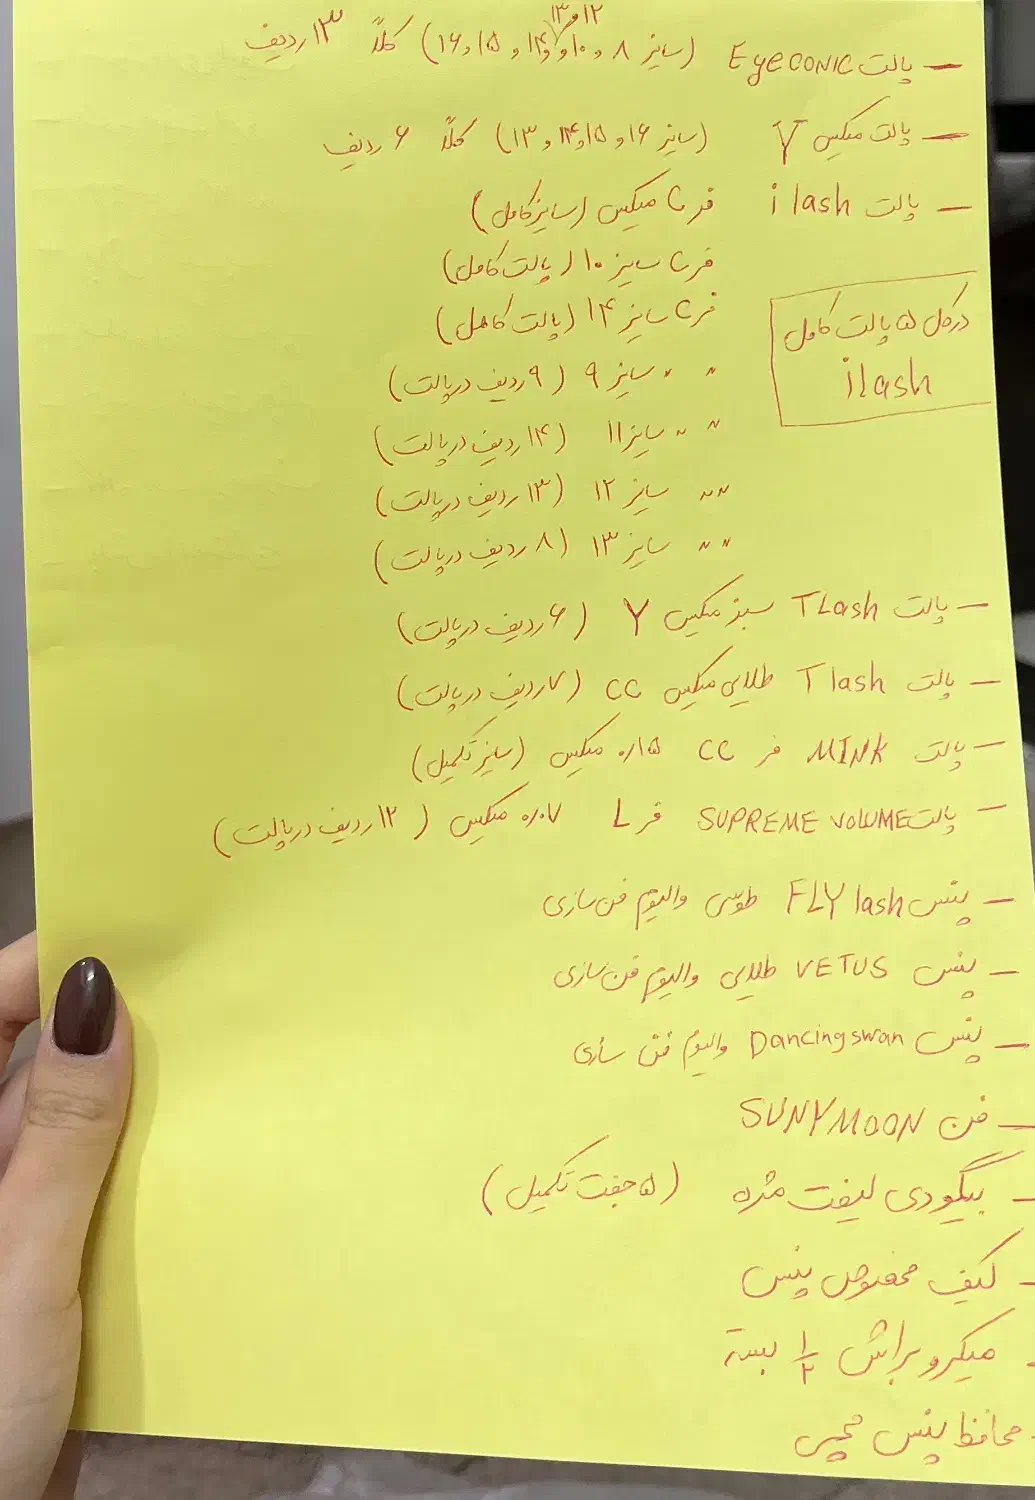 ۱۲ و ۱۳
– پالت Eyeconic (سایز ۸ و ۱۰ و ۱۴ و ۱۵ و ۱۶) کلاً ۱۳ ردیف
– پالت میکس Y (سایز ۱۶ و ۱۵ و ۱۴ و ۱۳) کلاً ۶ ردیف
– پالت ilash فر C میکس (سایز کامل)
فر C سایز ۱۰ (پالت کامل)
فر C سایز ۱۴ (پالت کامل)
در کل ۵ پالت کامل
ilash
〃 〃 سایز ۹ (۹ ردیف در پالت)
〃 〃 سایز ۱۱ (۱۴ ردیف در پالت)
〃 〃 سایز ۱۲ (۱۳ ردیف در پالت)
〃 〃 سایز ۱۳ (۸ ردیف در پالت)
– پالت TLash سبز میکس Y (۶ ردیف در پالت)
– پالت Tlash طلایی میکس CC (۷ ردیف در پالت)
– پالت MINK فر CC ۰/۱۵ میکس (سایز تکمیل)
– پالت SUPREME VOLUME فر L ۰.۰۷ میکس (۱۲ ردیف در پالت)
– پنس FLY lash طوسی والیوم فن سازی
– پنس VETUS طلایی والیوم فن سازی
– پنس Dancingswan والیوم فن سازی
– فن SUNYMOON
– بیگودی لیفت مژه (۵ جفت تکمیل)
– کیف مخصوص پنس
– میکروبراش ۱/۲ بسته
– محافظ پنس مچی